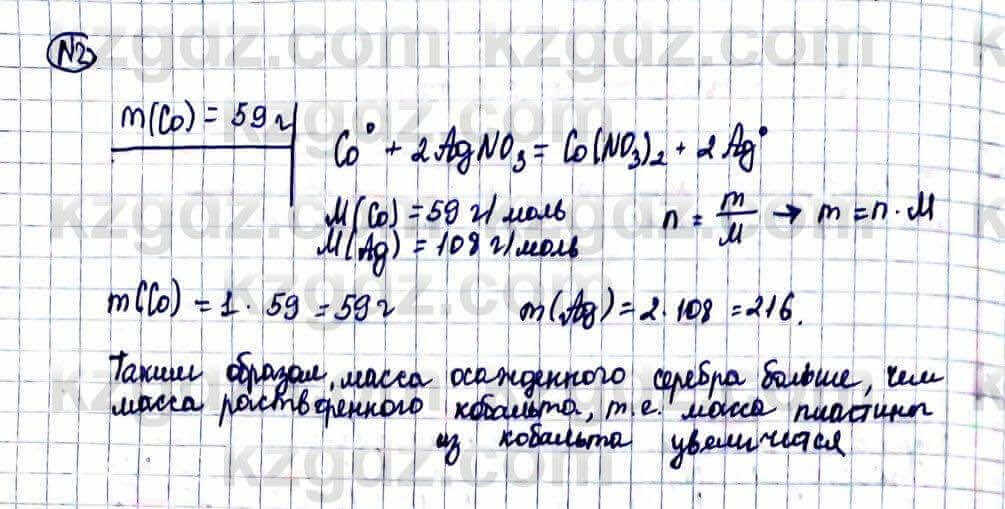 №2
m(Co) = 59 г
Co⁰ + 2AgNO₃ = Co(NO₃)₂ + 2Ag⁰
M(Co) = 59 г/моль
n = m/M → m = n · M
M(Ag) = 108 г/моль
m(Co) = 1 · 59 = 59 г
m(Ag) = 2 · 108 = 216.
Таким образом, масса осажденного серебра больше, чем
масса растворенного кобальта, т.е. масса пластины
из кобальта увеличится
kzgdz.com